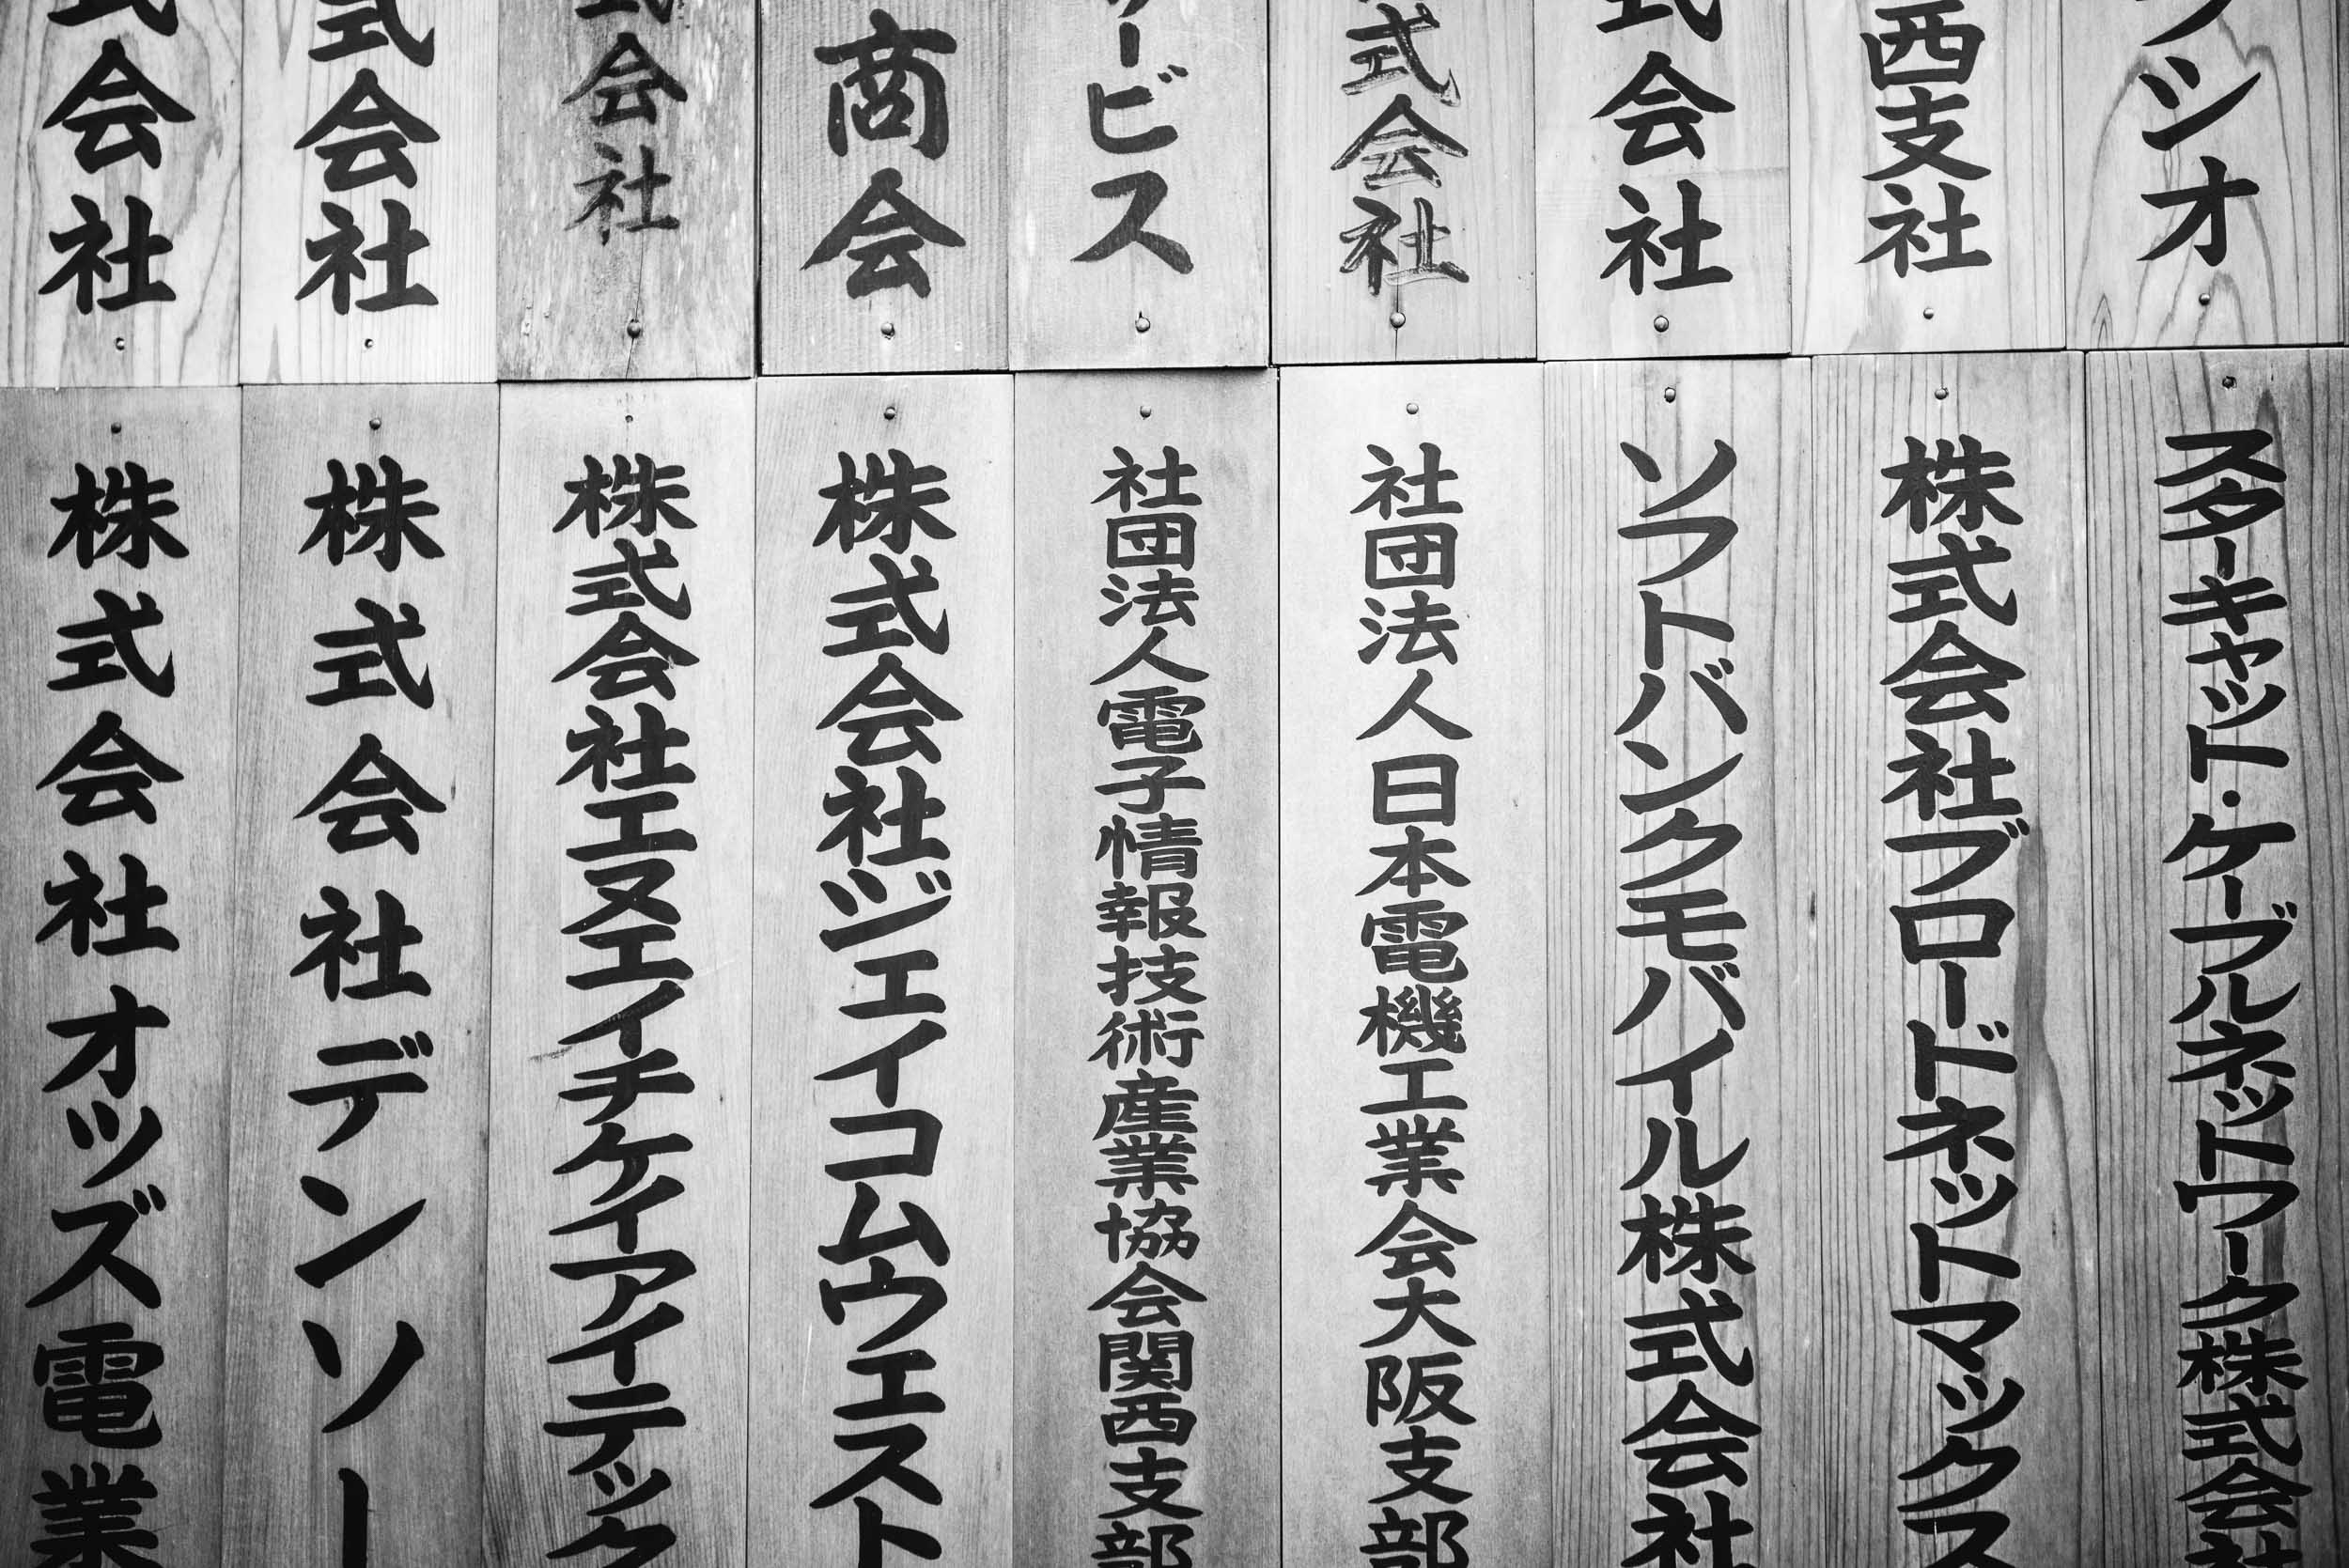 ンシオ
西支社
式会社
式会社
サービス
商会
式会社
式会社
式会社
スターキャット・ケーブルネットワーク株式会社
株式会社ブロードネットマックス
ソフトバンクモバイル株式会社
社団法人日本電機工業会大阪支部
社団法人電子情報技術産業協会関西支部
株式会社ジェイコムウエスト
株式会社エヌエイチケイアイテック
株式会社デンソー
株式会社オッズ電業